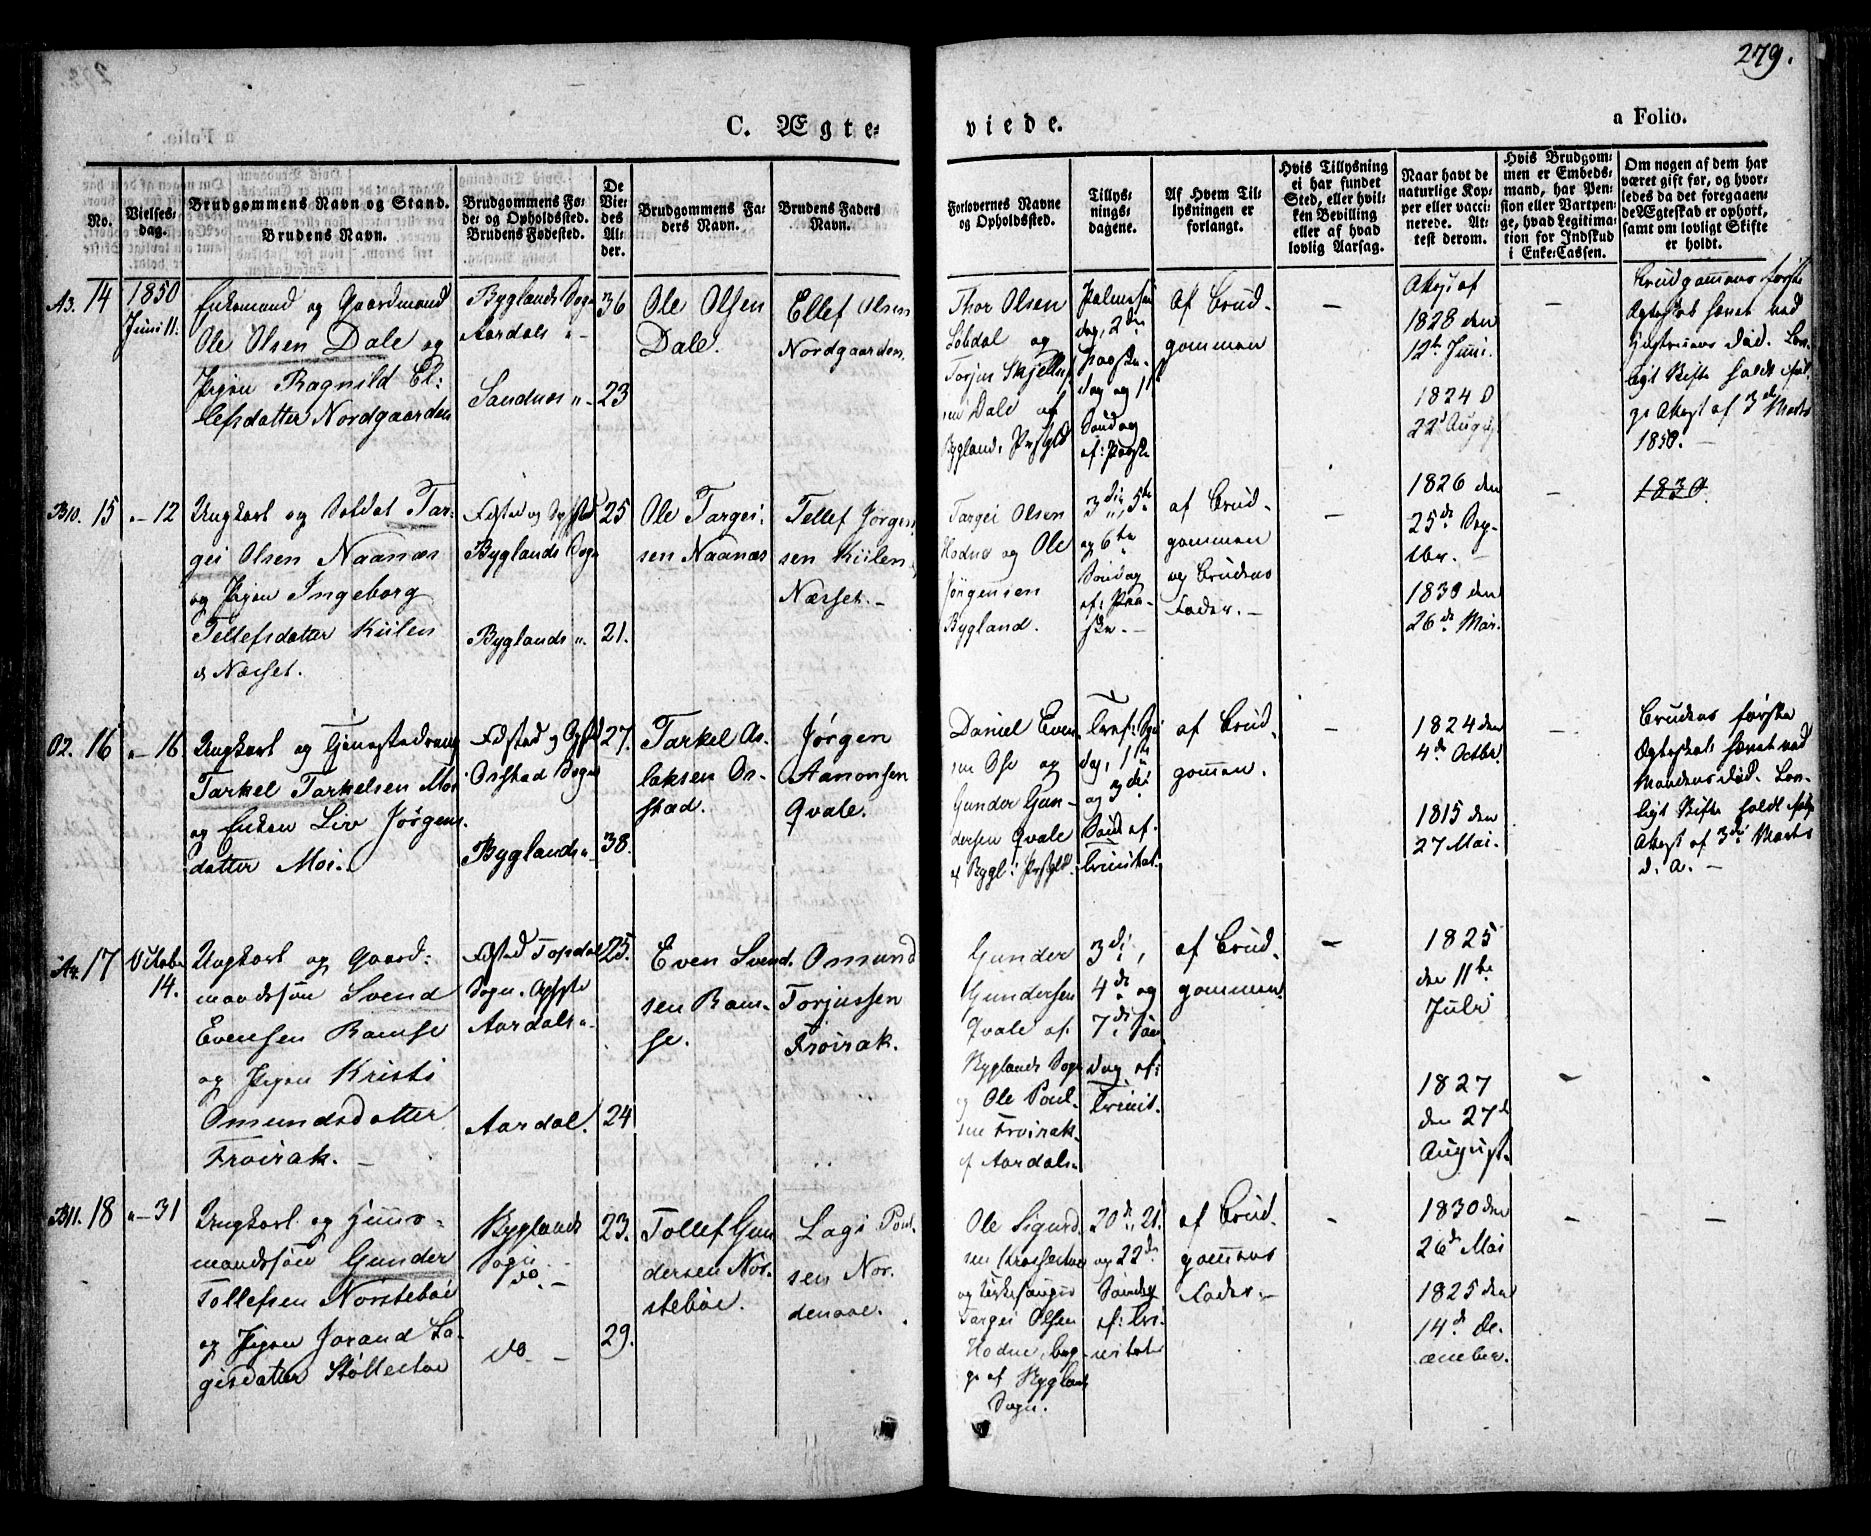 279.
C. Ægte-
viede.
a Folio.
No.
Vielses-
dag.
Brudgommens Navn og Stand.
Brudens Navn.
Brudgommens Fø-
de- og Opholdssted.
Brudens Fødested.
De
Vie-
des
Al-
der.
Brudgommens Fa-
ders Navn.
Brudens Faders
Navn.
Forlovernes Navne
og Opholdssted.
Tillys-
nings-
dagene.
Af Hvem Til-
lysningen er
forlangt.
Hvis Tillysning
ei har fundet
Sted, eller hvil-
ken Bevilling
eller af hvad
lovlig Aarsag.
Naar havt de
naturlige Kop-
per eller vacci-
nerede. At-
test derom.
Hvis Brudgom-
men er Embeds-
mand, har Pen-
sion eller Vartpen-
ge, hvad Legitima-
tion for Indskud
i Enke-Cassen.
Om nogen af dem har
været gift før, og hvor-
ledes da det foregaaen-
de Ægteskab er ophørt,
samt om lovligt Skifte
er holdt.
A3. 14
1850
Juni 11.
Enkemand og Gaardmand
Ole Olsen Dale og
Pigen Ragnild El-
lefsdatter Nordgaarden
Byglands Sogn
Aardals "-
Sandnæs "-
36
23
Ole Olsen
Dale.
Ellef Olsen
Nordgaarden.
Thor Olsen
og
Torjus
Dale af
Bygland
dag, 2den
dag og 1ste
Søndag
af Brud-
gommen
-
1828 den
12te Juni.
1824
22de August
-
Brudgommens første
Ægteskab hævet ved
Hustruens Død. Lov-
ligt Skifte holdt
Attest af 3de Marts
1850. -
B10. 15
"- 12
Ungkarl og Soldat Tar-
gei Olsen Naanæs
og Pigen Ingeborg
Tellefsdatter Kiilen
Næset.
Byglands Sogn
Byglands ".
25
21.
Ole Targei-
sen Naanæs
Tellef Jørgen-
sen Kiilen
Næset. -
Targei Olsen
og Ole
Jørgensen
Bygland.
3die, 5te
og 6te
Søndag
af Brud-
gommen
og Brudens
Fader. -
-
1826 den
25de
1830 den
26de Mai.
-
1830.
O2. 16
"- 16
Ungkarl og Tjenestedreng
Tarkel Tarkelsen Moi
og Enken Liv Jørgens-
datter Moi.
Ostad Sogn
Byglands "-
27.
38.
Tarkel As-
laksen Os-
stad.
Jørgen
Aanonsen
Qvale.
Daniel Even-
sen Ose og
Gunder Gun-
dersen Qvale
dag, 1ste
og 3die
Sønd. af
Trinitat.
af Brud-
gommen.
-
1824 den
4de Octbr.
1815 den
27 Mai.
-
Brudens første
Ægteskab hævet ved
Mandens Død. Lov-
ligt Skifte holdt
Attest af 3die Marts
d. A. -
A4. 17
October
14.
Ungkarl og Gaard-
mandssøn Svend
Evensen Ramse
og Pigen Kristi
Omundsdatter
Frøirak. -
Fødested Topdals
Sogn.
Aardals ".
Aardal.
25.
24
Even Svend-
sen Ram-
se.
Omund
Torjussen
Frøirak.
Gunder
Gundersen
Qvale af
Byglands Sogn
og Ole Poul-
sen Frøirak
af Aardals
3die,
4de og
7de Søn-
dag af
Trinit.
af Brud-
gommen.
-
1825
den 11te
Juli
1827
den 27de
August.
-
-
B11. 18
"- 31
Ungkarl og Huus-
mandssøn Gunder
Tollefsen Norstebøe
og Pigen Jorand La-
gisdatter Støllestøe
Byglands
Sogn
do. -
do. -
23.
29.
Tollef Gun-
dersen Nor-
stebøe.
Lagi Poul-
sen Nor-
denaae.
Ole Sigurd-
sen
og Kirkesanger
Targei Olsen
beg-
ge af Bygland
Sogn.
20de, 21.
og 22de
Søndag
af Tri-
nitatis
af Brud-
gommens
Fader. -
-
1830 den
26de Mai
1825 den
14de De-
cember.
-
-